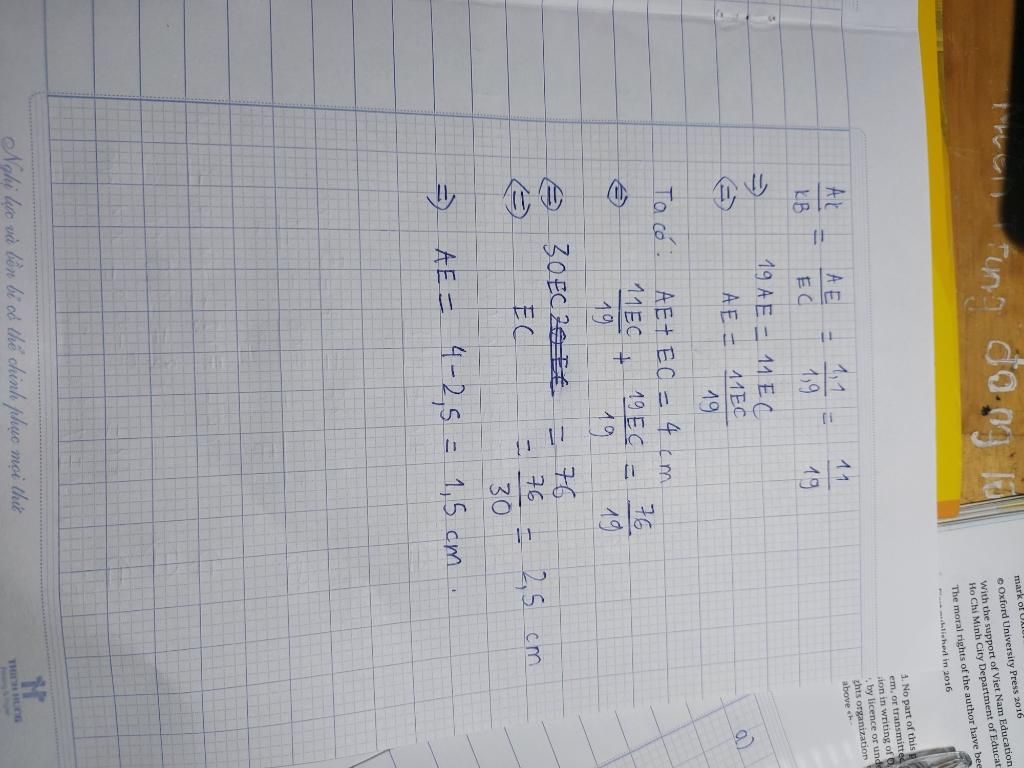 AK/KB = AE/EC = 1,1/1,9 = 11/19
⇒ 19AE = 11EC
⇔ AE = 11EC/19
Ta có: AE + EC = 4 cm
⇔ 11EC/19 + 19EC/19 = 76/19
⇔ 30EC = 76
⇔ EC = 76/30 = 2,5 cm
⇒ AE = 4 - 2,5 = 1,5 cm.
Nghị lực và bền bỉ có thể chinh phục mọi thứ
a)
© Oxford University Press 2016
With the support of Viet Nam Education
Ho Chi Minh City Department of Educat
The moral rights of the author have bee
published in 2016
1. No part of this
em, or transmitted
ion in writing of O
, by licence or und
ghts organization
above